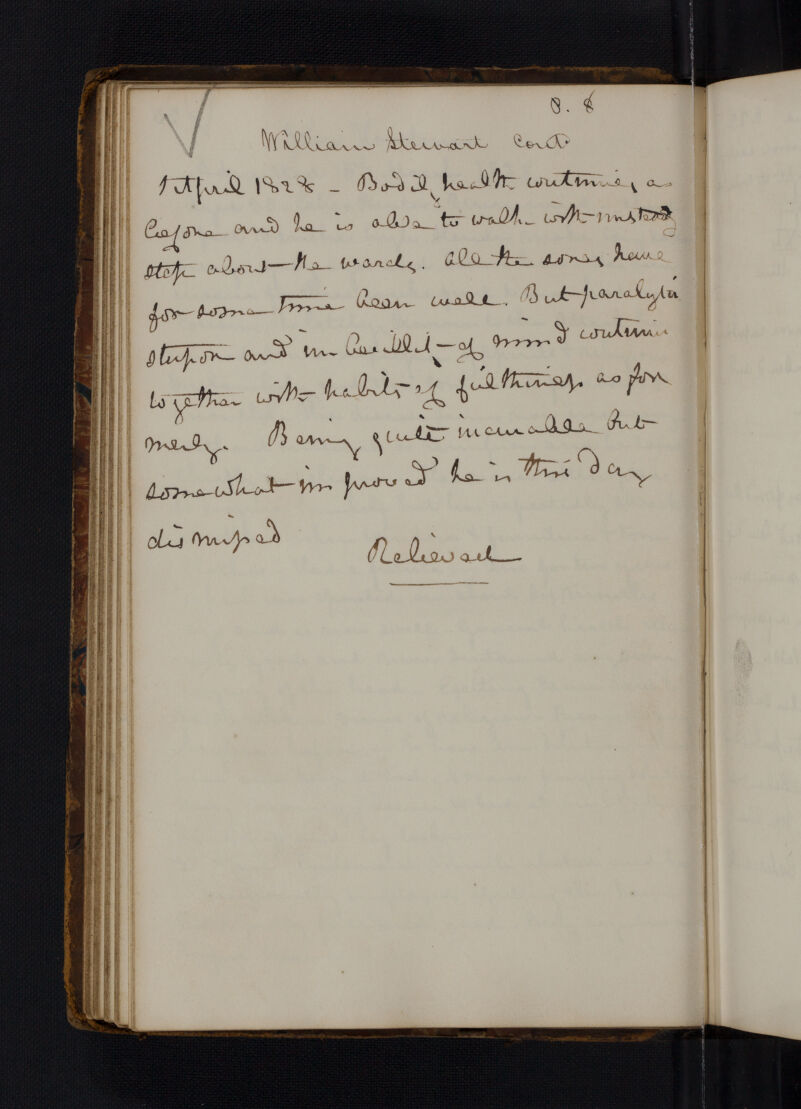 8. 8
William Stewart Contd
1 April 1828 - Bodily health continues as
before and he is able to walk with unsteady
step about the wards. All the sores have
for some time been well. But paralytic
stupor and imbecility of mind continue
together with habits of filthiness as for
merly. Being quite incurable but
somewhat improved he is this day
dismissed
Relieved